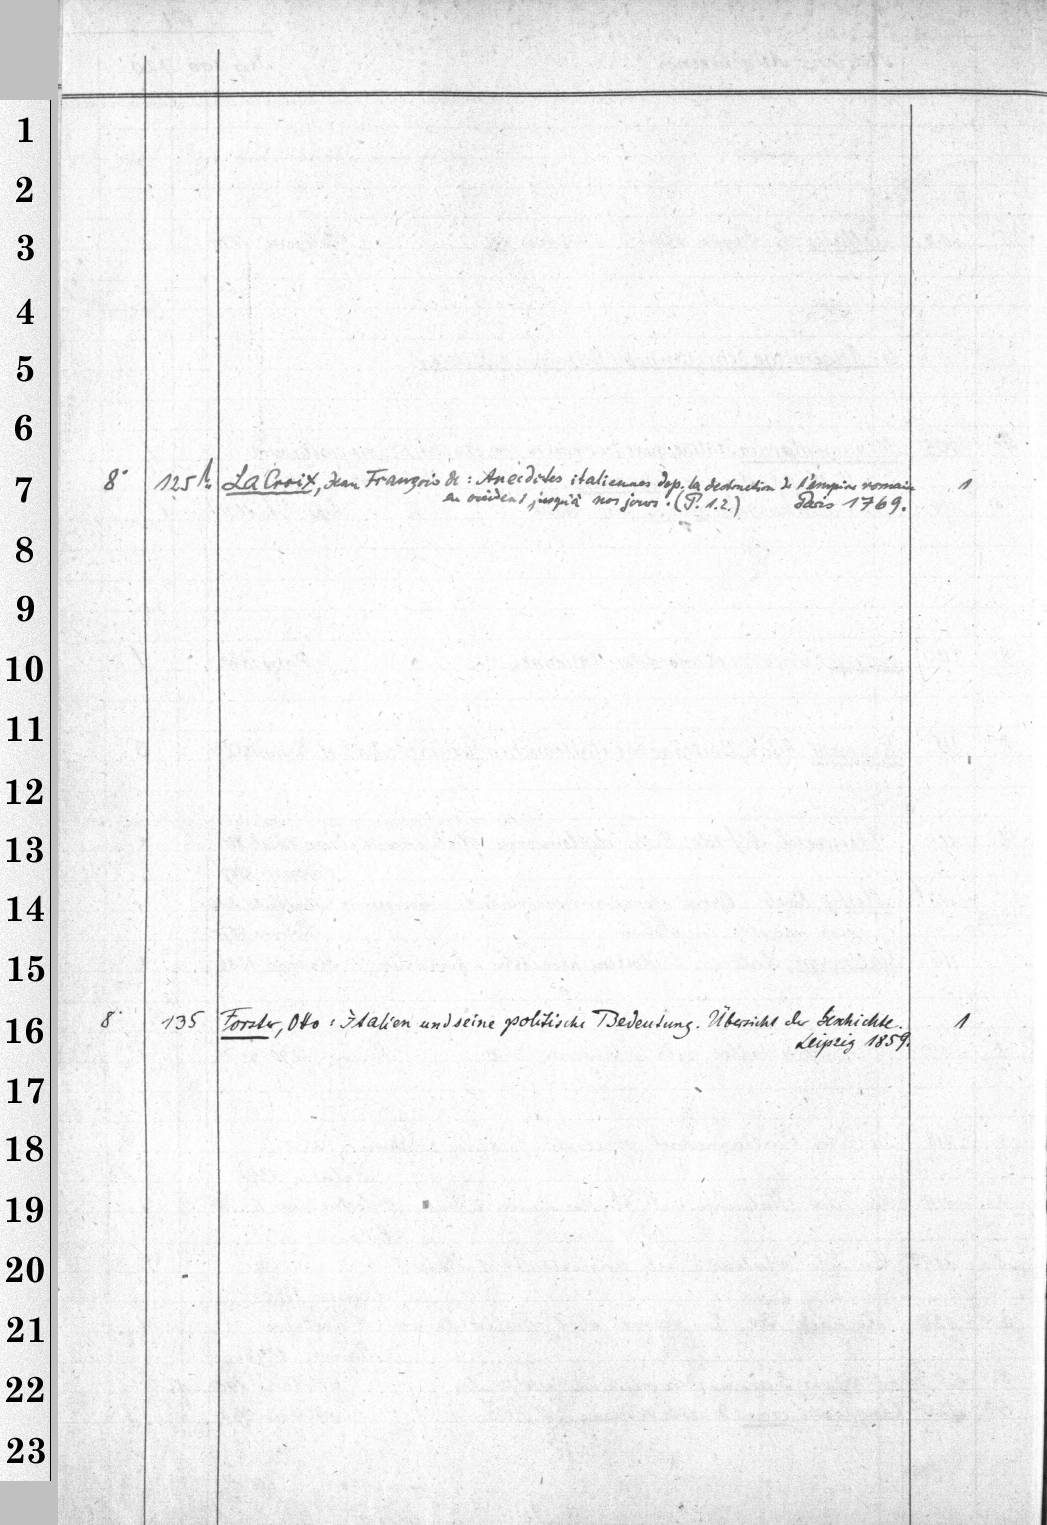 1
2
3
4
5
6
7
8° 125 h LaCroix, Jean François de: Anecdotes italiennes dep. la destruction de l'empire romain 1
en occident jusqu'à nos jours. (P. 1.2.) Paris 1769.
8
9
10
11
12
13
14
15
16
8° 135 Forster, Otto: Italien und seine politische Bedeutung. Übersicht der Geschichte. 1
Leipzig 1859.
17
18
19
20
21
22
23